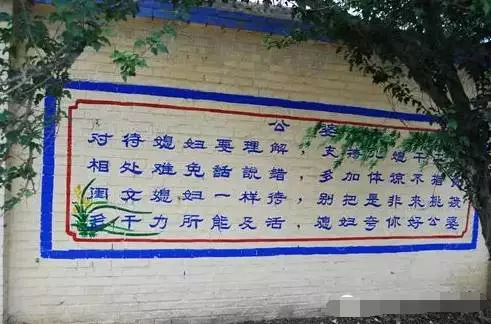 公婆
对待媳妇要理解，支持媳干工
相处难免话説错，多加体谅不指
闺女媳妇一样待，别把是非来挑拨
多干力所能及活，媳妇夸你好公婆